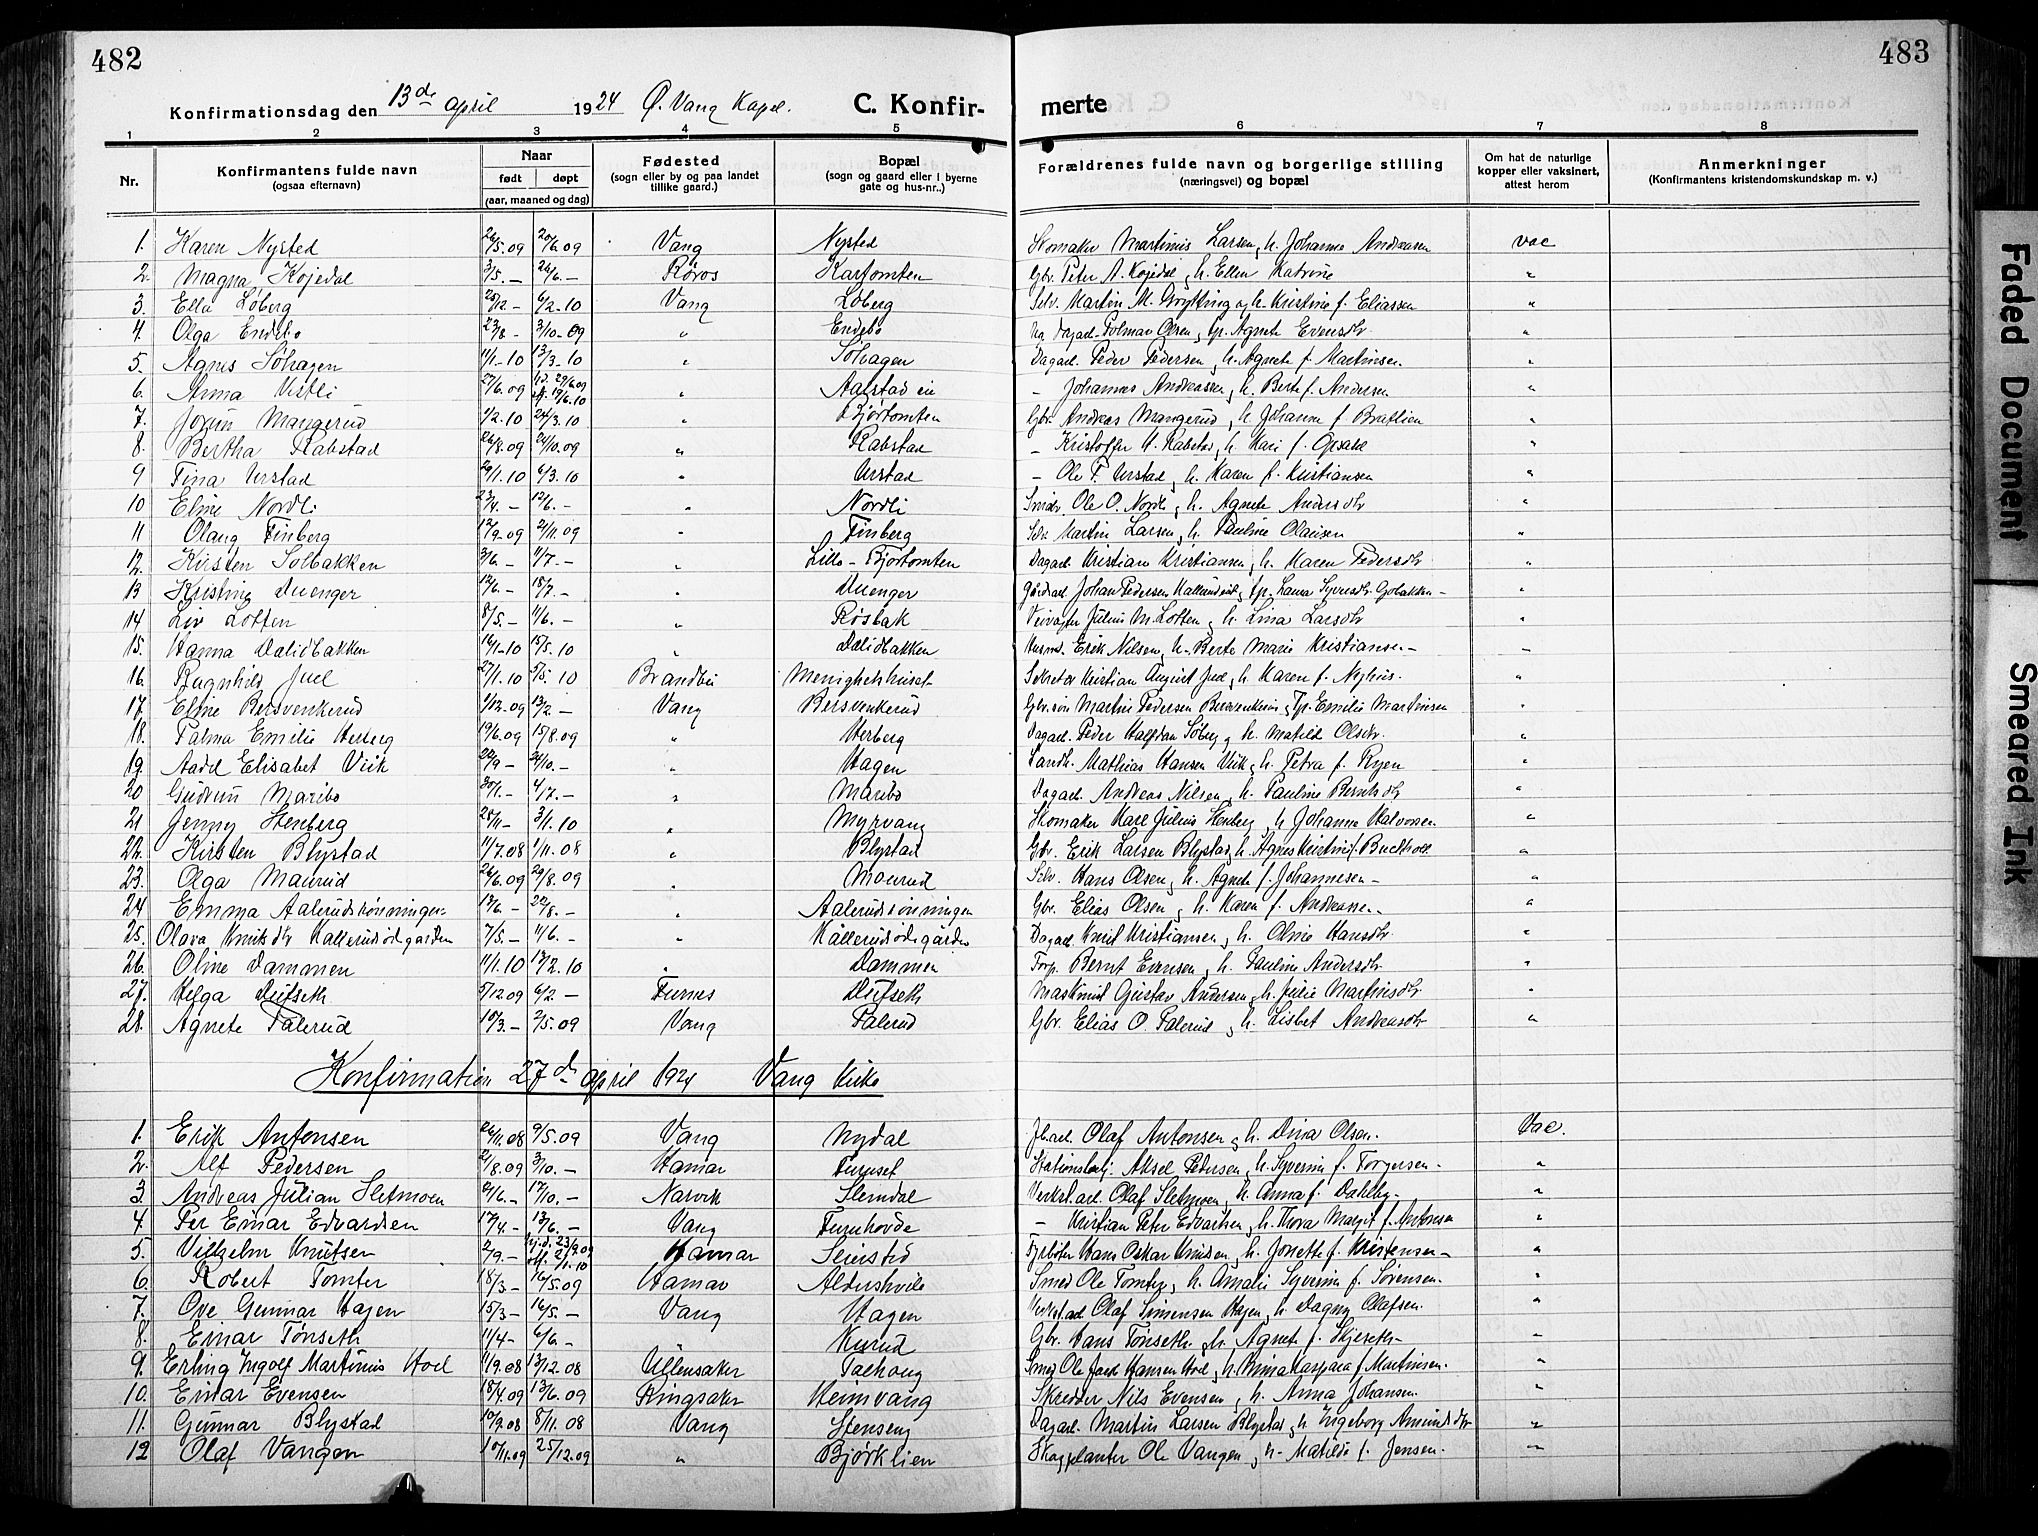 482
483
Konfirmationsdag den 13de april 1924 Ø. Vang Kapel. C. Konfir-
merte
1 2 3 4 5 6 7 8
Nr. Konfirmantens fulde navn (ogsaa efternavn) Naar født døpt (aar, maaned og dag) Fødested (sogn eller by og paa landet tillike gaard.) Bopæl (sogn og gaard eller i byerne gate og hus-nr.) Forældrenes fulde navn og borgerlige stilling (næringsvei) og bopæl Om hat de naturlige kopper eller vaksinert, attest herom Anmerkninger (Konfirmantens kristendomskundskap m. v.)
1. Karen Nysted 26/5.09 20/6.09 Vang Nysted Skomaker Martinus Larsen, h. Johanne Andreasen vac
2. Magna Kojedal 3/5.— 26/6.— Røros Kartomten Gbr. Peter A. Kojedal, h. Ellen Katrine "
3. Ella Løberg 25/12— 6/2.10 Vang Løberg Selv. Martin M. og h. Kristine f. Eliassen "
4. Olga Endebo 23/8— 3/10—09 " Endebo Olsen, Agnete Evensdtr. "
5. Agnes Søhagen 11/1—10 13/3.10 " Søhagen Dagarb. Peder Pedersen, h. Agnete f. Martinsen. "
6. Anna Vestli 27/6.09 hd. 29/6.09 st. 19/6.10 " Aalstad eie — Johannes Andreassen, h. Berte f. Andersen "
7. Jorun Mangerud 1/2.10 24/3.10 " Bjørtomten Gbr. Andreas Mangerud, h. Johanne f. Bratlien "
8. Bertha Rabstad 26/8.09 24/10.09 " Rabstad — Kristoffer H. Rabstad, h. Mari f. Opsal "
9 Tina Urstad 29/1.10 6/3.10 " Urstad — Ole T. Urstad, h. Karen f. Kristiansen "
10 Eline Nordli 23/4.— 12/6.— " Nordli Ole O. Nordli, h. Agnete Andersdtr "
11 Olaug Finberg 12/9—09 21/11.09 " Finberg Selv. Martin Larsen, h. Pauline Olausen "
12. Kirsten Solbakken 3/6.— 11/7.— " Lille-Bjørtomten Dagarb. Kristian Kristiansen, h. Karen Pedersdtr "
13 Kristine Duenger 12/6.— 18/7.— " Duenger Gårdarb. Johan Pedersen Laura Syversdtr. — "
14 Liv Lotten 8/5.— 11/6.— " Røsbak Veivogter Julius M. Lotten, h. Lina Larsdtr "
15. Hanna Dalidbakken 16/1—10 15/5.10 " Dalidbakken Husm. Erik Nilsen, h. Berte Marie Kristiansen — "
16. Ragnhild Juel 27/1.10 5/5.10 Brandbu Menighetshuset Sekretær Kristian August Juel, h. Karen f. Nyhus. "
17. Eline Bersvenkerud 1/12.09 13/2.— Vang Bersvenkerud Gbr.søn Martin Pedersen Bersvenkerud, Emilie Martinsen "
18. Palma Emilie Herberg 19/6.09 15/8.09 " Herberg Dagarb. Peder Halfdan h. Matild Olsdtr. "
19. Aadel Elisabet Viik 22/9— 24/10.— " Hagen Landh. Mathias Hansen Viik, h. Petra f. Ryen "
20 Gudrun Maribo 30/1.— 4/7.— " Maribo Dagarb. Andreas Nilsen, h. Pauline Berntsdtr "
21 Jenny Stenberg 28/11— 3/1.10 " Myrvang Skomaker Karl Julius Stenberg, h Johanne Halvorsen "
22. Kirsten Blystad 11/7.08 1/11.08 " Blystad Gbr. Erik Larsen Blystad, h. Agnes Kristine f. "
23. Olga Maurud 26/6.09 29/8.09 " Mourud Selv. Hans Olsen, h. Agnete f. Johannesen — "
24 Emma Aalerudrønningen 13/6.— 22/8.— " Aalerudrønningen Gbr. Elias Olsen, h. Karen f. Andreassen. "
25. Olava Knutsdtr Kallerudødegården 7/5.— 11/6.— " Kallerudødegården Dagarb. Knut Kristiansen, h. Oline Hansdtr. "
26. Oline Dammen 11/1.10 13/2.10 " Dammen Torp. Bernt Evensen, h. Pauline Andersdtr "
27. Helga Dufseth 5/12.09 6/2.— Furnes Dufseth Maskinist Gustav Andersen, h. Julie Martinsdtr "
28. Agnete Falerud 10/3.— 2/5.09 Vang Falerud Gbr. Elias O. Falerud, h. Lisbet Andreasdtr "
Konfirmation 27de april 1924 Vang kirke
1. Erik Antonsen 26/11.08 9/5.09 Vang Nydal Olaf Antonsen, h. Dina Olsen. Vac.
2. Alf Pedersen 21/8.09 3/10.— Hamar Furuset Stationsbetj. Aksel Pedersen, h. Syverine f. Torgersen. "
3. Andreas Julian Sletmoen 12/6.— 17/10.— Narvik Slemdal Verkst.arb. Olaf Sletmoen, h. Anna f. Dahlby. "
4. Per Einar Edvardsen 17/4.— 13/6.— Vang Furuhovde — Kristian Peter Edvardsen, h. Thora Margit f. Antonsen "
5. Vilhelm Knutsen 2/9.— hj.d. 23/9.09 st. 2/1.10 Hamar Seiersted Fyrbøter Hans Oskar Knudsen, h. Jonette f. Kristensen — "
6. Robert Tomter 18/3— 16/5.09 Hamar Aldershvile Smed Ole Tomter, h. Amalie Syverine f. Sørensen. "
7. Ove Gunnar Hagen 15/3— 16/5.— Vang Hagen Verkst.arb Olaf Simensen Hagen, h. Dagny Olafsen. "
8. Einar Tønseth 11/4— 6/6.— " Kurud Gbr. Hans Tønseth, h. Agnete f. Skjeseth — "
9. Erling Ingolf Martinius Hoel 11/9.08 13/12.08 Ullensaker Solhaug Smed Ole Hansen Hoel, h. Anna Kaspara f. Martinsen. "
10. Einar Evensen 18/4.09 13/6.09 Ringsaker Heimvang Skredder Nils Evensen, h. Anna Johansen. "
11. Gunnar Blystad 10/9.08 8/11.08 Vang Stenseng Dagarb. Martin Larsen Blystad, h Ingeborg Amundsdtr "
12 Olaf Vangen 10/11.09 25/12.09 " Bjørklien Skogplanter Ole Vangen, h. Matilde f. Jensen. "
Faded Document Smeared Ink